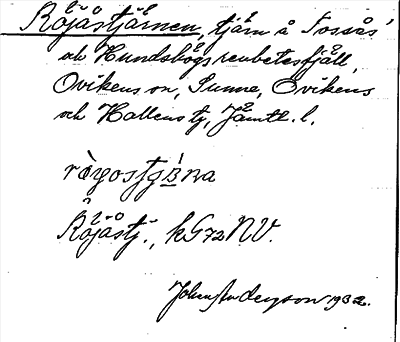 Röjåstjärnen, tjärn å Fossås'
och Hundshögs renbetesfjäll,
Ovikens sn, Sunne, Ovikens
och Hallens tg, Jämtl. l.
Röjåstj., kG72NV.
John Anderzson 1932.